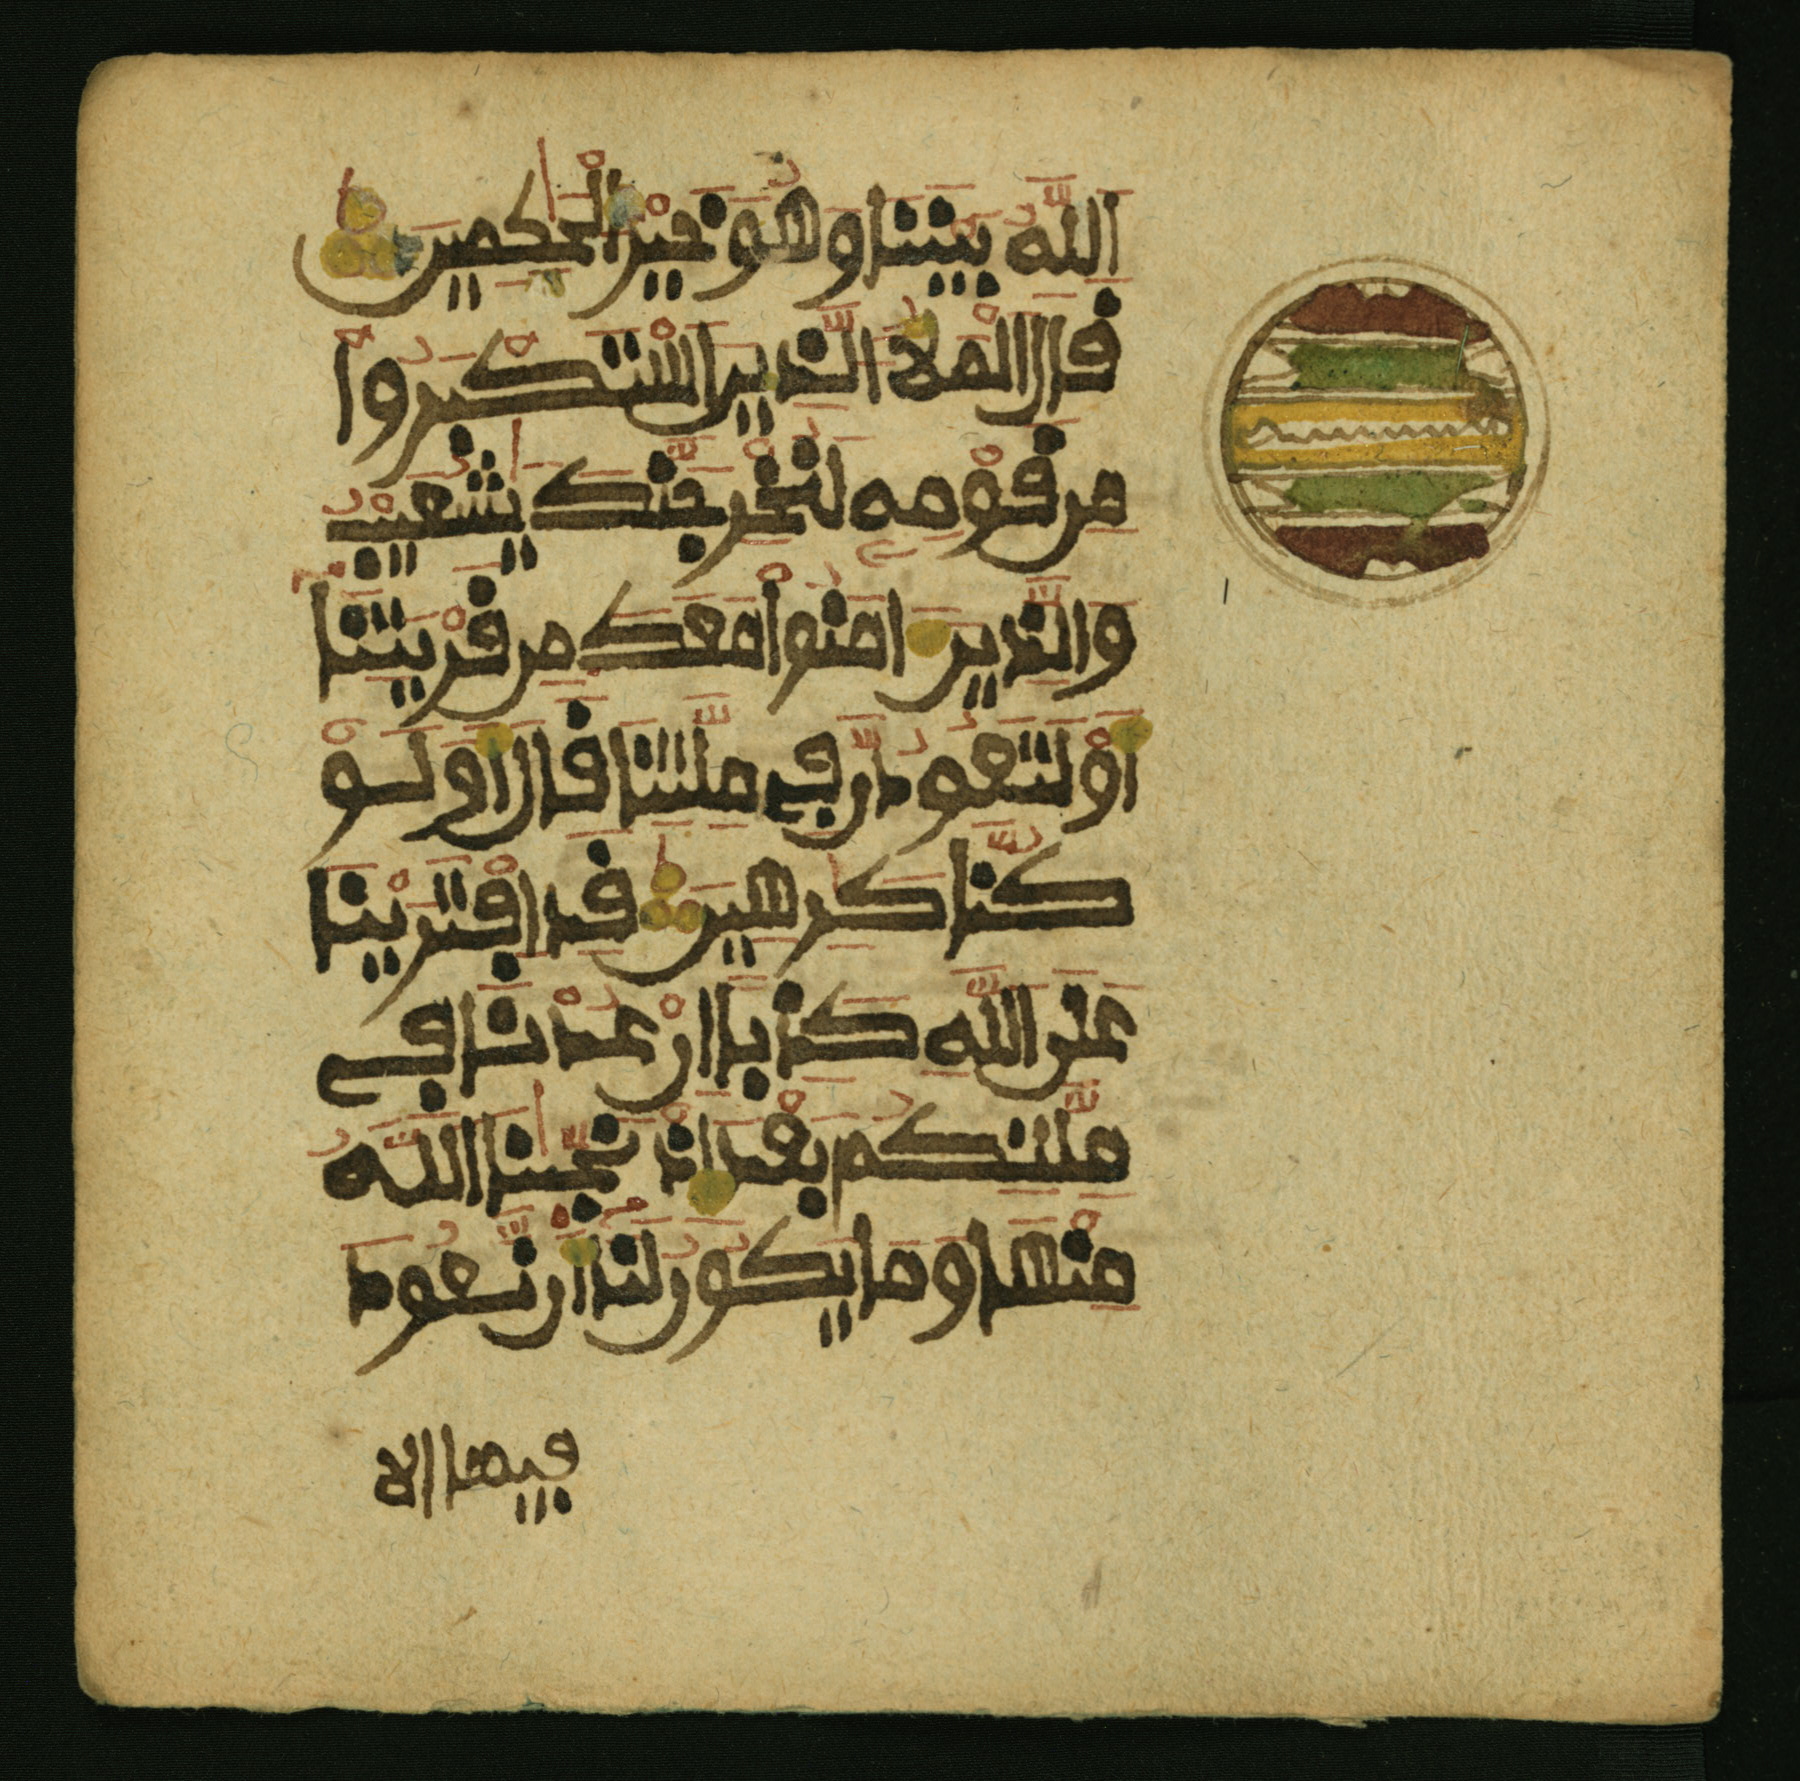 اللَّهُ بَيْنَنَا وَهُوَ خَيْرُ الْحَٰكِمِينَ
قَالَ الْمَلَأُ الَّذِينَ اسْتَكْبَرُوا
مِن قَوْمِهِ لَنُخْرِجَنَّكَ يَٰشُعَيْبُ
وَالَّذِينَ ءَامَنُوا مَعَكَ مِن قَرْيَتِنَا
أَوْ لَتَعُودُنَّ فِي مِلَّتِنَا قَالَ أَوَلَوْ
كُنَّا كَٰرِهِينَ قَدِ افْتَرَيْنَا
عَلَى اللَّهِ كَذِبًا إِنْ عُدْنَا فِي
مِلَّتِكُم بَعْدَ إِذْ نَجَّىٰنَا اللَّهُ
مِنْهَا وَمَا يَكُونُ لَنَا أَن نَّعُودَ
فيها إلا